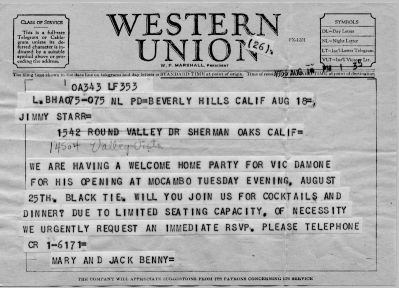 CLASS OF SERVICE
This is a full-rate
Telegram or Cable-
gram unless its de-
ferred character is in-
dicated by a suitable
symbol above or pre-
ceding the address.
WESTERN
UNION
(26).
W. P. MARSHALL, PRESIDENT
SYMBOLS
DL=Day Letter
NL=Night Letter
LT=Int'l Letter Telegram
VLT=Int'l Victory Ltr.
The filing time shown in the date line on telegrams and day letters is STANDARD TIME at point of origin. Time of receipt is STANDARD TIME at point of destination
OA343 LF353
L.BHA075-075 NL PD=BEVERLY HILLS CALIF AUG 18=,
JIMMY STARR=
1542 ROUND VALLEY DR SHERMAN OAKS CALIF=
14504 Valley Vista
WE ARE HAVING A WELCOME HOME PARTY FOR VIC DAMONE
FOR HIS OPENING AT MOCAMBO TUESDAY EVENING, AUGUST
25TH. BLACK TIE. WILL YOU JOIN US FOR COCKTAILS AND
DINNER? DUE TO LIMITED SEATING CAPACITY, OF NECESSITY
WE URGENTLY REQUEST AN IMMEDIATE RSVP. PLEASE TELEPHONE
CR 1-6171=
MARY AND JACK BENNY=
THE COMPANY WILL APPRECIATE SUGGESTIONS FROM ITS PATRONS CONCERNING ITS SERVICE